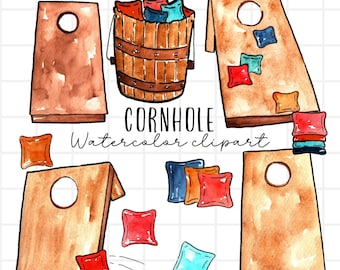 CORNHOLE
Watercolor clipart